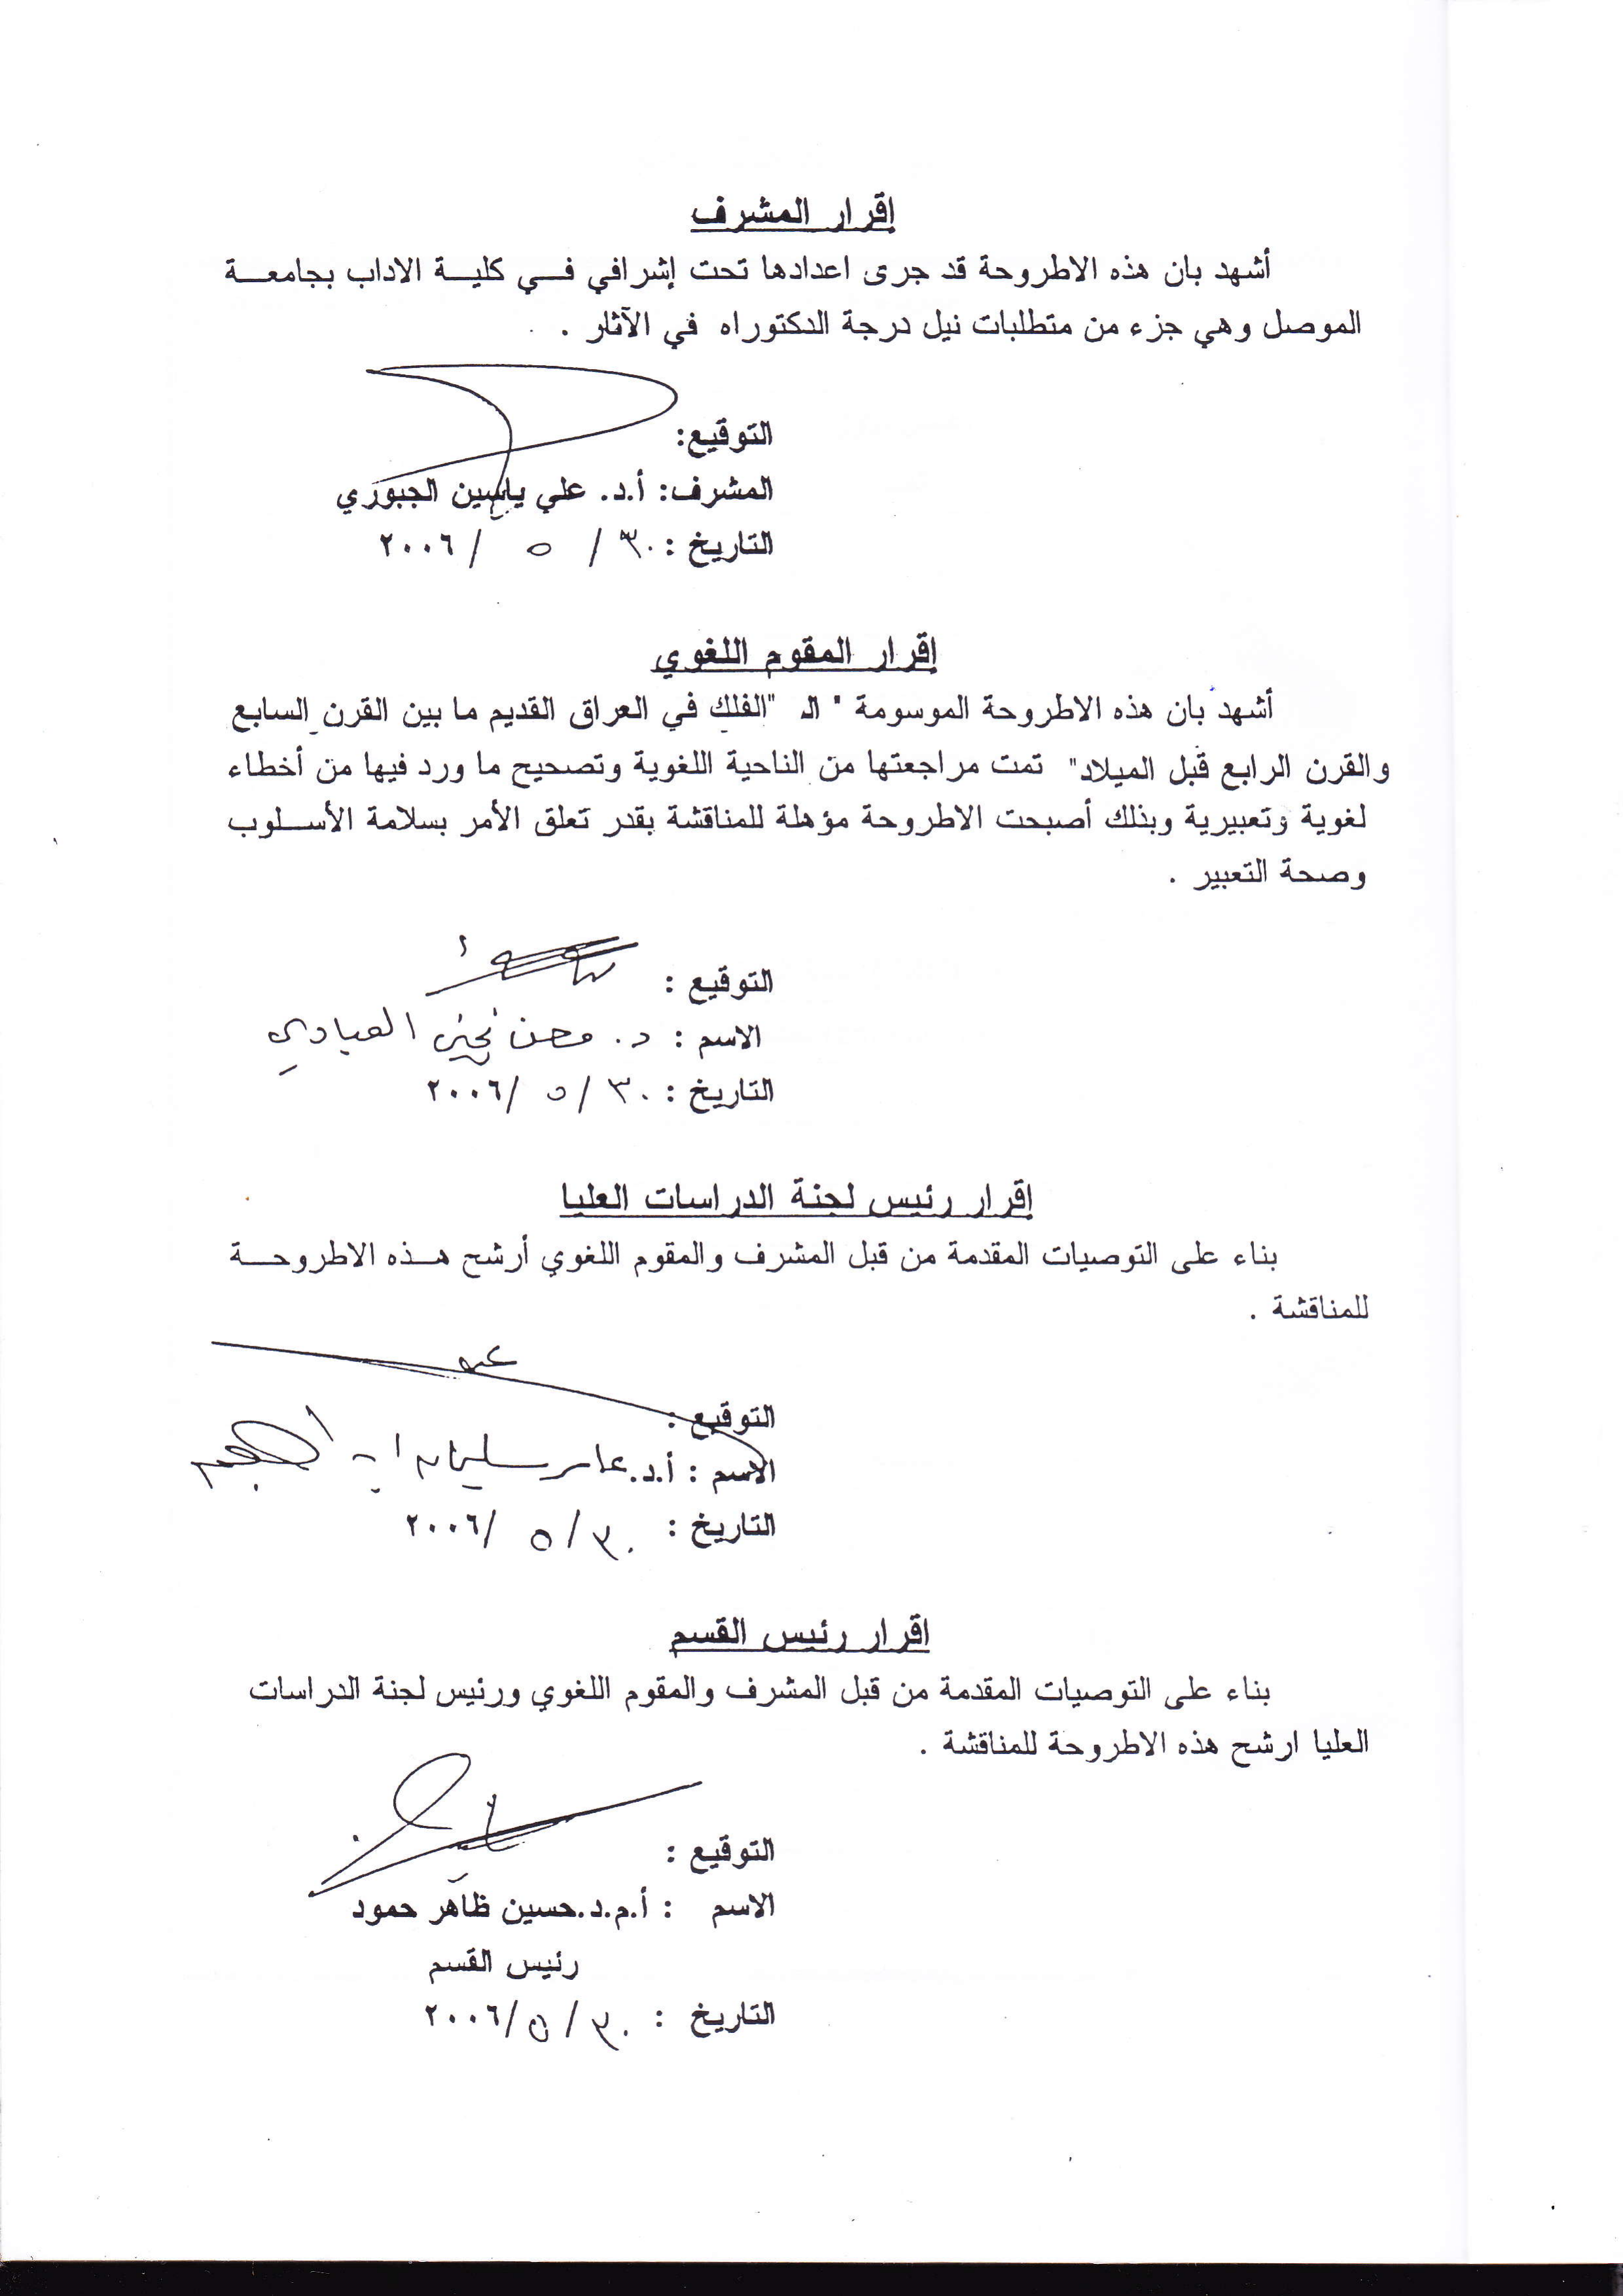 إقرار المشرف
أشهد بان هذه الاطروحة قد جرى اعدادها تحت إشرافي في كلية الاداب بجامعة
الموصل وهي جزء من متطلبات نيل درجة الدكتوراه في الآثار .
التوقيع:
المشرف: أ.د. علي ياسين الجبوري
التاريخ : ٣٠ / ٥ / ٢٠٠٦
إقرار المقوم اللغوي
أشهد بان هذه الاطروحة الموسومة " الـ "الفلك في العراق القديم ما بين القرن السابع
والقرن الرابع قبل الميلاد" تمت مراجعتها من الناحية اللغوية وتصحيح ما ورد فيها من أخطاء
لغوية وتعبيرية وبذلك أصبحت الاطروحة مؤهلة للمناقشة بقدر تعلق الأمر بسلامة الأسلوب
وصحة التعبير .
التوقيع :
الاسم : د. العبادي
التاريخ : ٣٠ / ٥ / ٢٠٠٦
إقرار رئيس لجنة الدراسات العليا
بناء على التوصيات المقدمة من قبل المشرف والمقوم اللغوي أرشح هذه الاطروحة
للمناقشة .
التوقيع :
الاسم : أ.د. عامر سليمان
التاريخ : ٣٠ / ٥ / ٢٠٠٦
اقرار رئيس القسم
بناء على التوصيات المقدمة من قبل المشرف والمقوم اللغوي ورئيس لجنة الدراسات
العليا ارشح هذه الاطروحة للمناقشة .
التوقيع :
الاسم : أ.م.د.حسين ظاهر حمود
رئيس القسم
التاريخ : ٣٠ / ٥ / ٢٠٠٦